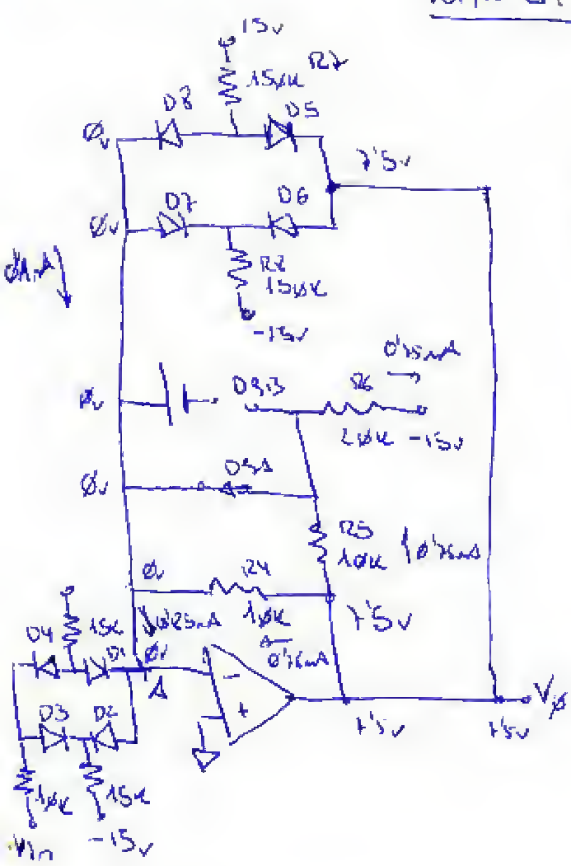 15v
R7
150K
D8
D5
Øv
7'5v
D7
D6
Øv
R8
150K
-15v
0'75mA
Øv
R6
20K -15v
Øv
R5
10K
0'75mA
Øv
R4
10K
7'5v
0'25mA
0'75mA
Øv
D4
15K
D1
A
-
+
D3
D2
7'5v
7'5v
VØ
10K
15K
Vin
-15v